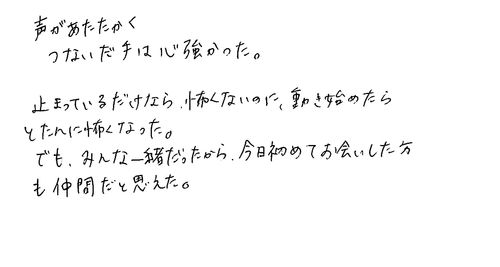 声があたたかく
つないだ手は心強かった。
止まっているだけなら、怖くないのに、動き始めたら
とたんに怖くなった。
でも、みんな一緒だったから、今日初めてお会いした方
も仲間だと思えた。